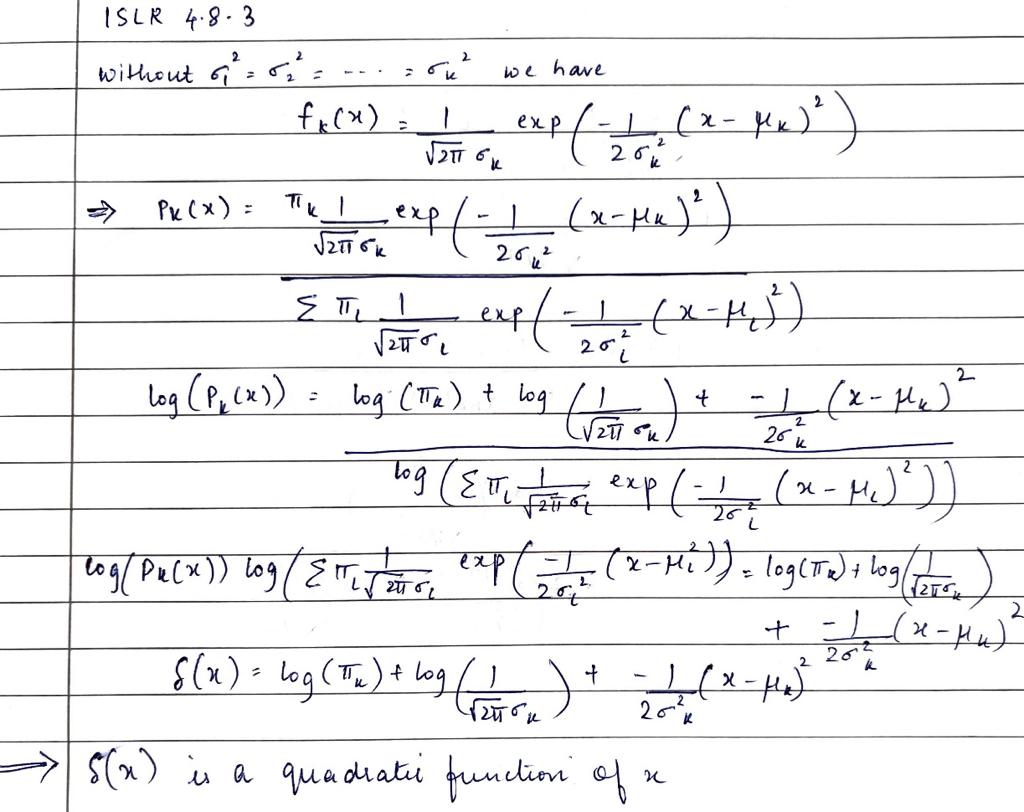 ISLR 4.8.3
without σ₁² = σ₂² = ---- = σₖ² we have
fₖ(x) = 1/(√2π σₖ) exp(-1/(2σₖ²) (x-μₖ)²)
⇒ Pₖ(x) = πₖ 1/(√2π σₖ) exp(-1/(2σₖ²) (x-μₖ)²)
Σ πₗ 1/(√2π σₗ) exp(-1/(2σₗ²) (x-μₗ)²)
log(Pₖ(x)) = log(πₖ) + log(1/(√2π σₖ)) + -1/(2σₖ²) (x-μₖ)²
log(Σ πₗ 1/(√2π σₗ) exp(-1/(2σₗ²) (x-μₗ)²))
log(Pₖ(x)) log(Σ πₗ 1/(√2π σₗ) exp(-1/(2σₗ²) (x-μₗ²)) = log(πₖ) + log(1/(√2π σₖ))
+ -1/(2σₖ²) (x-μₖ)²
δ(x) = log(πₖ) + log(1/(√2π σₖ)) + -1/(2σ²ₖ) (x-μₖ)²
⇒ δ(x) is a quadratic function of x